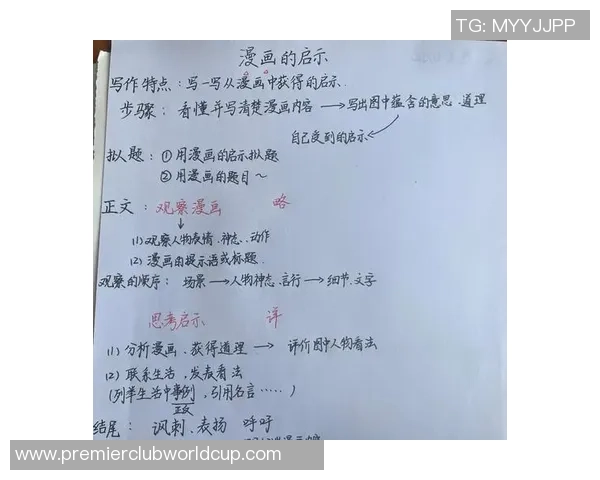 TG: MYYJJPP
漫画的启示
写作特点：写一写从漫画中获得的启示.
步骤：看懂并写清楚漫画内容 → 写出图中蕴含的意思.道理
自己受到的启示
拟人题：① 用漫画的启示拟题
② 用漫画的题目～
正文：观察漫画 略
↓
(1) 观察人物表情.神态.动作
(2) 漫画由提示语或标题.
观察的顺序：场景 → 人物神态.言行 → 细节.文字
思考启示 详
(1) 分析漫画.获得道理 → 评价图中人物看法
(2) 联系生活，发表看法
(列举生活中事例，引用名言……)
正反
结尾：讽刺.表扬 呼吁
www.premierclubworldcup.com